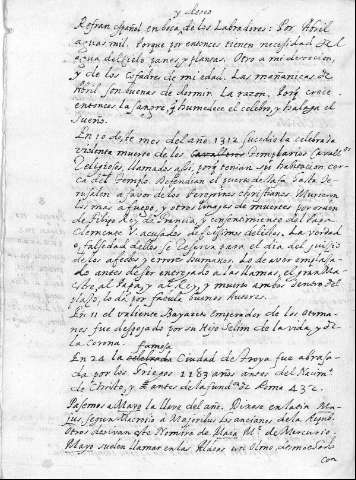 y deseo
Refran español en boca de los Labradores: Por Abril
aguas mil. Porque por entonces tienen necesidad del
agua del cielo panes y plantas. Otro a mi devocion,
y de los Cofadres de mi edad. Las mañanicas de
Abril son buenas de dormir. La razon, porq crece
entonces la sangre, q humedece el celebro, y halaga el
sueño.
En 10 deste mes del año 1312 sucedio la celebrada
violenta muerte de los Templarios Cavalleros
Religiosos, llamados assi, porq tenian su habitacion cer
ca del templo. Defendian el puerto de Jafa hasta Je
rusalen a favor de los Peregrinos Christianos. Murieron
los mas a fuego, y otros linajes de muertes por orden
de Filipo Rey de Francia, y consentimiento del Papa
Clemente V. acusados de feissimos delictos. La verdad
o falsedad dellos se reserva para el dia del juizio
de los afectos, y errores humanos. Lo de aver emplaza
do antes de ser entregado a las llamas, el gran Ma
estro al Papa, y al Rey, y muerto ambos dentro del
plazo, lo dan por fabula buenos Autores.
En 11 el valiente Bayazeto emperador de los otoma
nos fue despojado por su Hijo Selim de la vida, y de
la corona.
famosa
En 24 la celebrada Ciudad de Troya fue abrasa
da por los Griegos 1183 años antes del Nacimto
de Christo, y antes de la fundon de Roma 432.
Pasemos a Mayo la llave del año. Dixose en latin Ma
ius, segun Macrobio a Maioribus los ancianos de la Repub.
Otros derivan este Nombre de Maia Me de Mercurio.
Mayo suelen llamar en las Aldeas un olmo desmochado
con